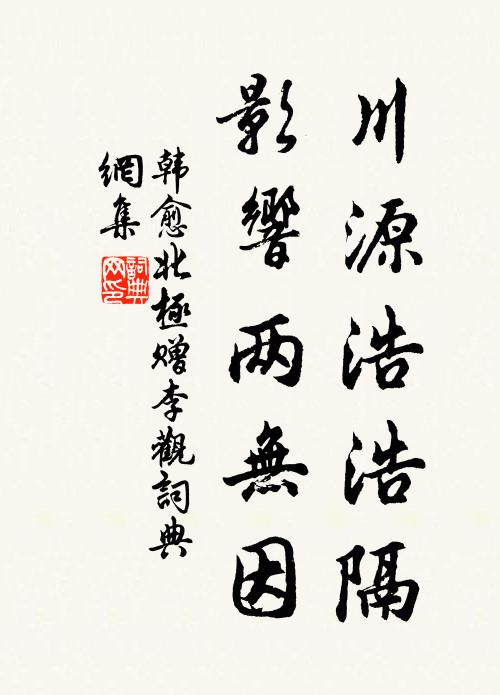 川源浩浩隔
影響两無因
韩愈北極赠李觀詞典
網集
詞典
网印